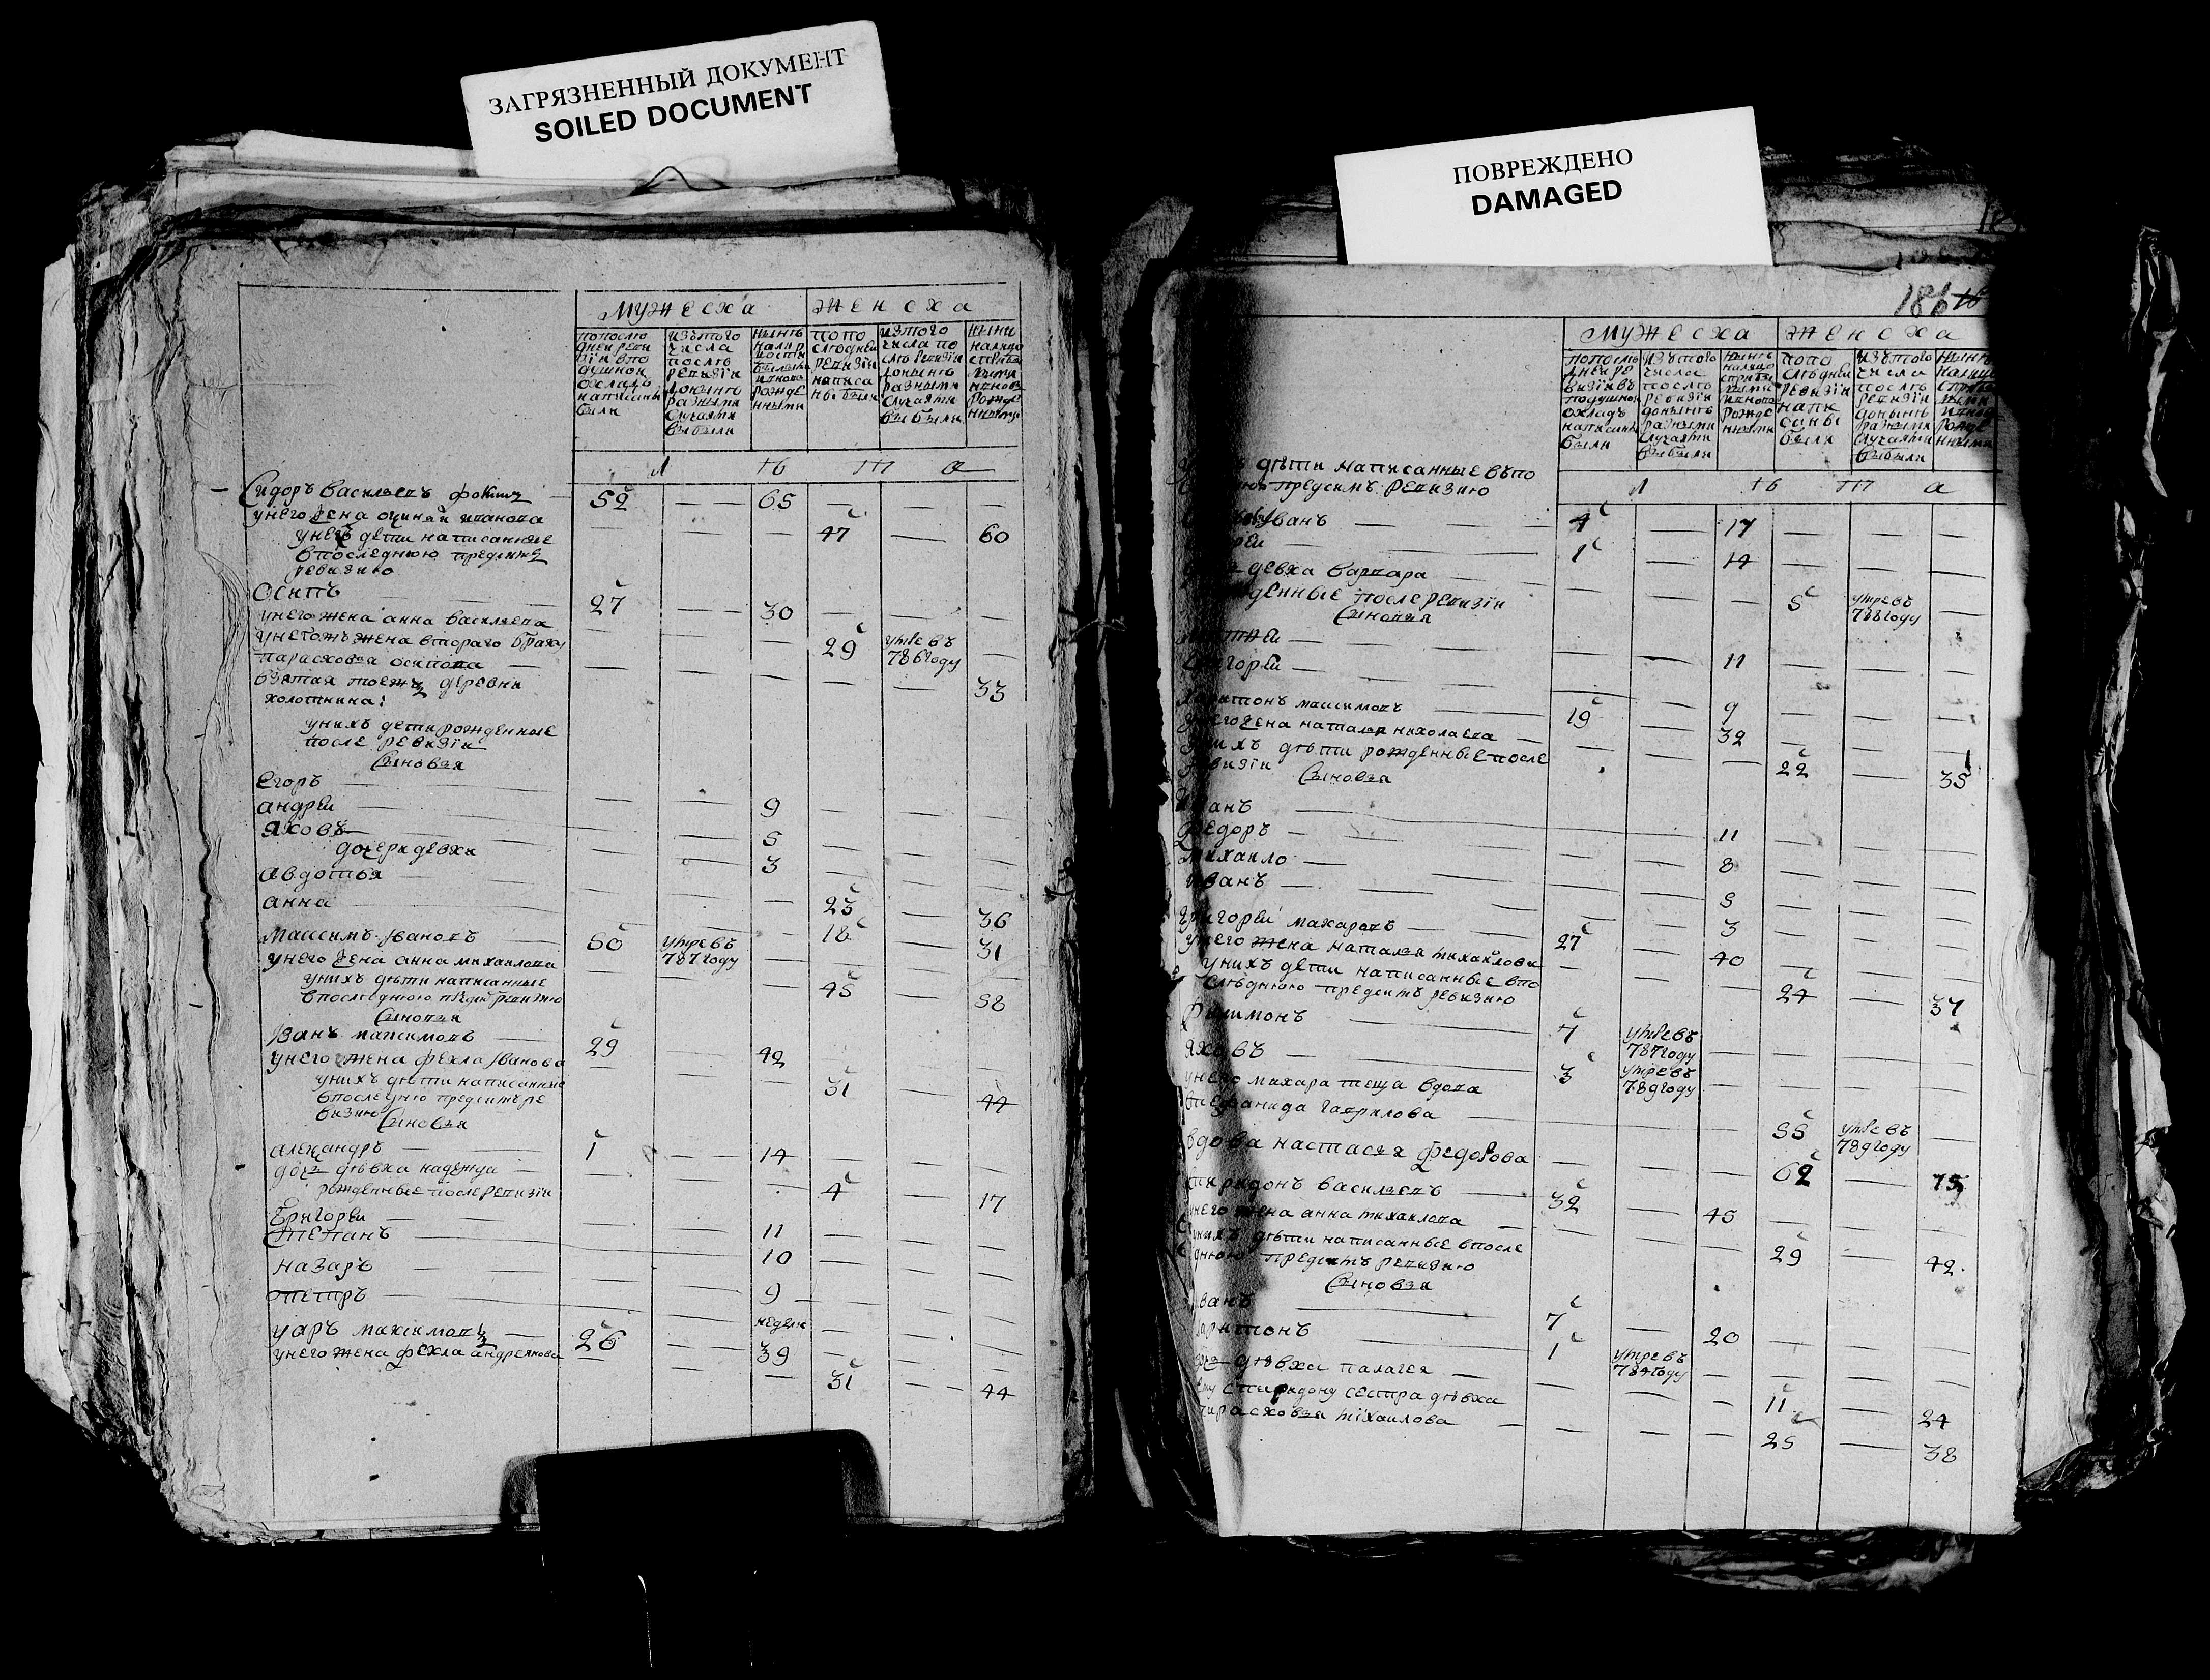 ЗАГРЯЗНЕННЫЙ ДОКУМЕНТ
SOILED DOCUMENT
мужеска женска
попослѣ дней реви зіи впо душной окладъ написаны были
изътого числа послѣ ревизіи донынѣ разными случаями выбыли
нынѣ
рожде нными
попо слѣдней ревизіи написа ны были
изтого числа по слѣ ревизіи донынѣ разными случаями выбыли
нынѣ налицо
рожде нными
л ѣ т а
Сидоръ васильевъ 52 — 65 — — —
унего жена иванова — — — 47 — 60
унего дети написанные
впоследнюю предсимъ
ревизию
осипъ 27 — 30 — — —
унего жена анна васильева — — — 29 умре въ 786 году —
унегожъ жена втораго браку
парасковья осипова — — — — — 33
взятая тоежъ деревни
холопкина
унихъ дети рожденные
после ревизіи
сыновья
егоръ — — 9 — — —
андрей — — 5 — — —
яковъ — — 3 — — —
дочери девки
авдотья — — — 23 — 36
анна — — — 18 — 31
максимъ ивановъ 50 умре въ 787 году — — — —
унего жена анна михайлова — — — 45 — 58
унихъ дѣти написанные
впоследнюю предсимъ ревизию
сыновья
иванъ максимовъ 29 — 42 — — —
унего жена фекла иванова — — — 31 — 44
унихъ дѣти написанные
впоследнюю предсимъ ре
визию сыновья
александръ 1 — 14 — — —
дочь дѣвка надежда — — — 4 — 17
рожденные после ревизіи
григорей — — 11 — — —
степанъ — — 10 — — —
назаръ — — 9 — — —
петръ — — недели — — —
уаръ максимовъ 26 — 39 — — —
унего жена фекла андреянова — — — 31 — 44
ПОВРЕЖДЕНО
DAMAGED
186
мужеска женска
попослѣ дней ре визіи въ подушной окладъ написаны были
изътого числа послѣ ревизіи донынѣ разными случаями выбыли
нынѣ налицо
рожде нными
попо слѣдней ревизіи напи саны были
изътого числа послѣ ревизіи донынѣ разными случаями выбыли
нынѣ налицо
нными
дѣти написанные въпо
предсимъ ревизию
л ѣ т а
иванъ 4 — 17 — — —
1 — 14 — — —
девка варвара — — — 5 умре въ 788 году —
после ревизіи
сыновья
— — 11 — — —
григорей — — 9 — — —
харитонъ максимовъ 19 — 32 — — —
унего жена наталья николаева — — — 22 — 35
унихъ дѣти рожденные после
ревизіи сыновья
иванъ — — 11 — — —
федоръ — — 8 — — —
михайло — — 5 — — —
иванъ — — 3 — — —
григорей макаровъ 27 — 40 — — —
унего жена наталья михайлова — — — 24 — 37
унихъ дети написанные впо
следнюю предсимъ ревизию
филимонъ 4 умре въ 787 году — — — —
яковъ 3 умре въ 789 году — — — —
унего макара теща вдова
стефанида гаврилова — — — 55 умре въ 789 году —
вдова настасья федорова — — — 62 — 75
спиридонъ васильевъ 32 — 45 — — —
унего жена анна михайлова — — — 29 — 42
унихъ дѣти написанные впосле
днюю предсимъ ревизию
сыновья
иванъ 7 — 20 — — —
харитонъ 1 умре въ 784 году — — — —
дочь дѣвка палагея — — — 11 — 24
ему спиридону сестра дѣвка
парасковья михаилова — — — 25 — 38